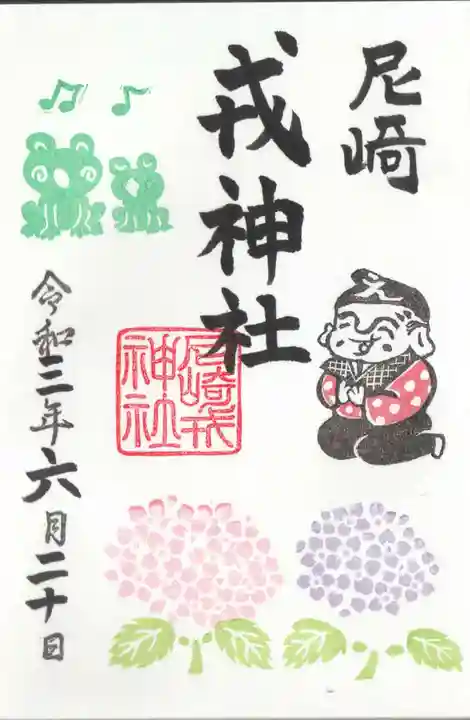 尼崎
戎神社
尼崎戎
神社
令和三年六月二十日
え